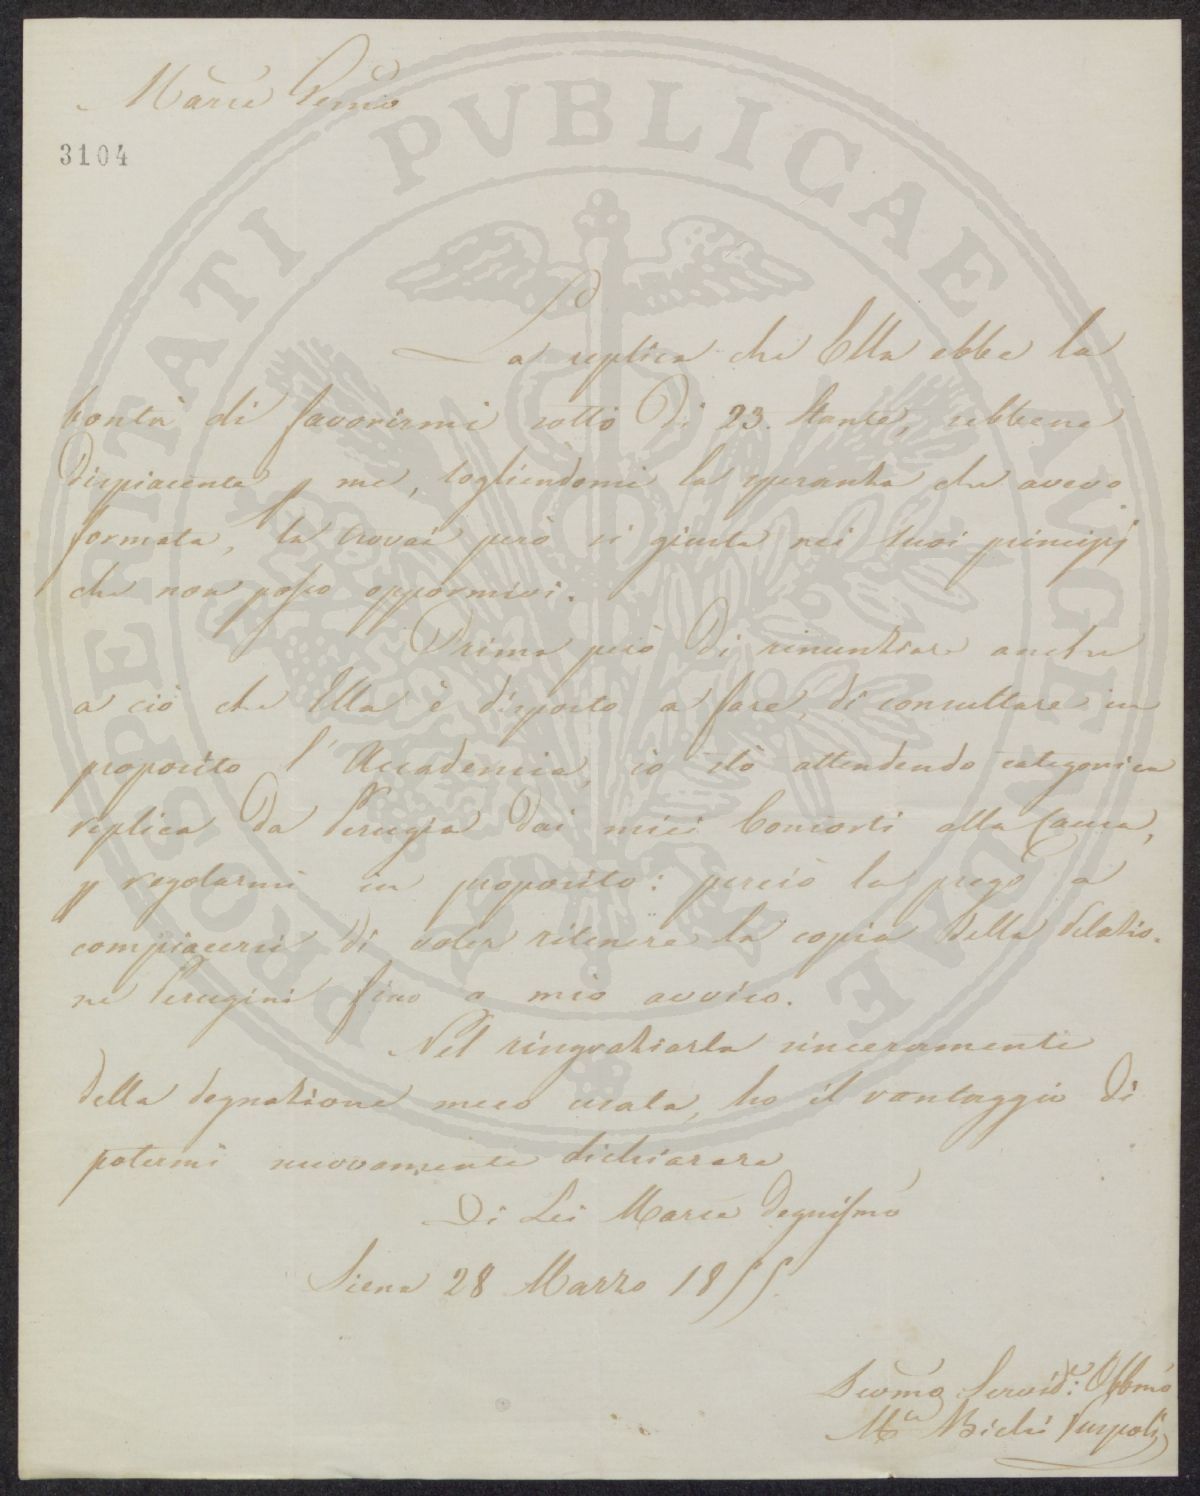 Marce Pemo
3104
La replica che Ella ebbe la
bontà di favorirmi sotto Dì 23. Stante, sebbene
Dispiacente p me, togliendomi la speranza che avevo
formata, la trovai però sì giusta nei suoi principj
che non posso oppormivi.
Prima però Di rinunziare anche
a ciò che Ella è disposto a fare, di consultare in
proposito l'Accademia, io stò attendendo categorica
replica Da Perugia Dai miei Consorti alla Causa,
p regolarmi in proposito: perciò la prego a
compiacersi Di voler ritenere la copia Della Relazio-
ne Perugini fino a mio avviso.
Nel ringraziarla sinceramente
Della degnazione meco usata, ho il vantaggio Di
potermi nuovamente dichiarare
Di Lei Marce Degnissmo
Siena 28 Marzo 1855.
Devmo Servid.e: Obbmo
M.se Bichi Ruspoli
PROSPERITATI PVBLICAE AVGENDAE